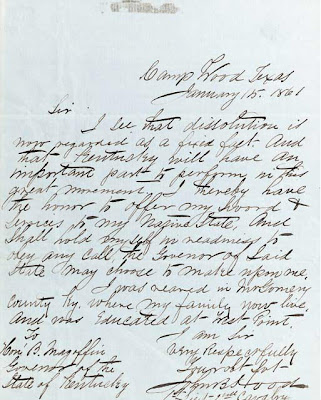 Camp Wood Texas
January 15. 1861
Sir
I see that dissolution is
now regarded as a fixed fact. And
that Kentucky will have an
important part to perform in this
great movement. I thereby have
the honor to offer my Sword &
services to my Native State, And
shall hold myself in readiness to
obey any Call, the Govenor of said
State may choose to make upon me.
I was reared in
County Ky. where my family now live
And was Educated at West Point.
I am Sir
To Very Respectfully
Hon, B. Magoffin Your obt Svt
Governor of the Hood
State of Kentucky Cavalry